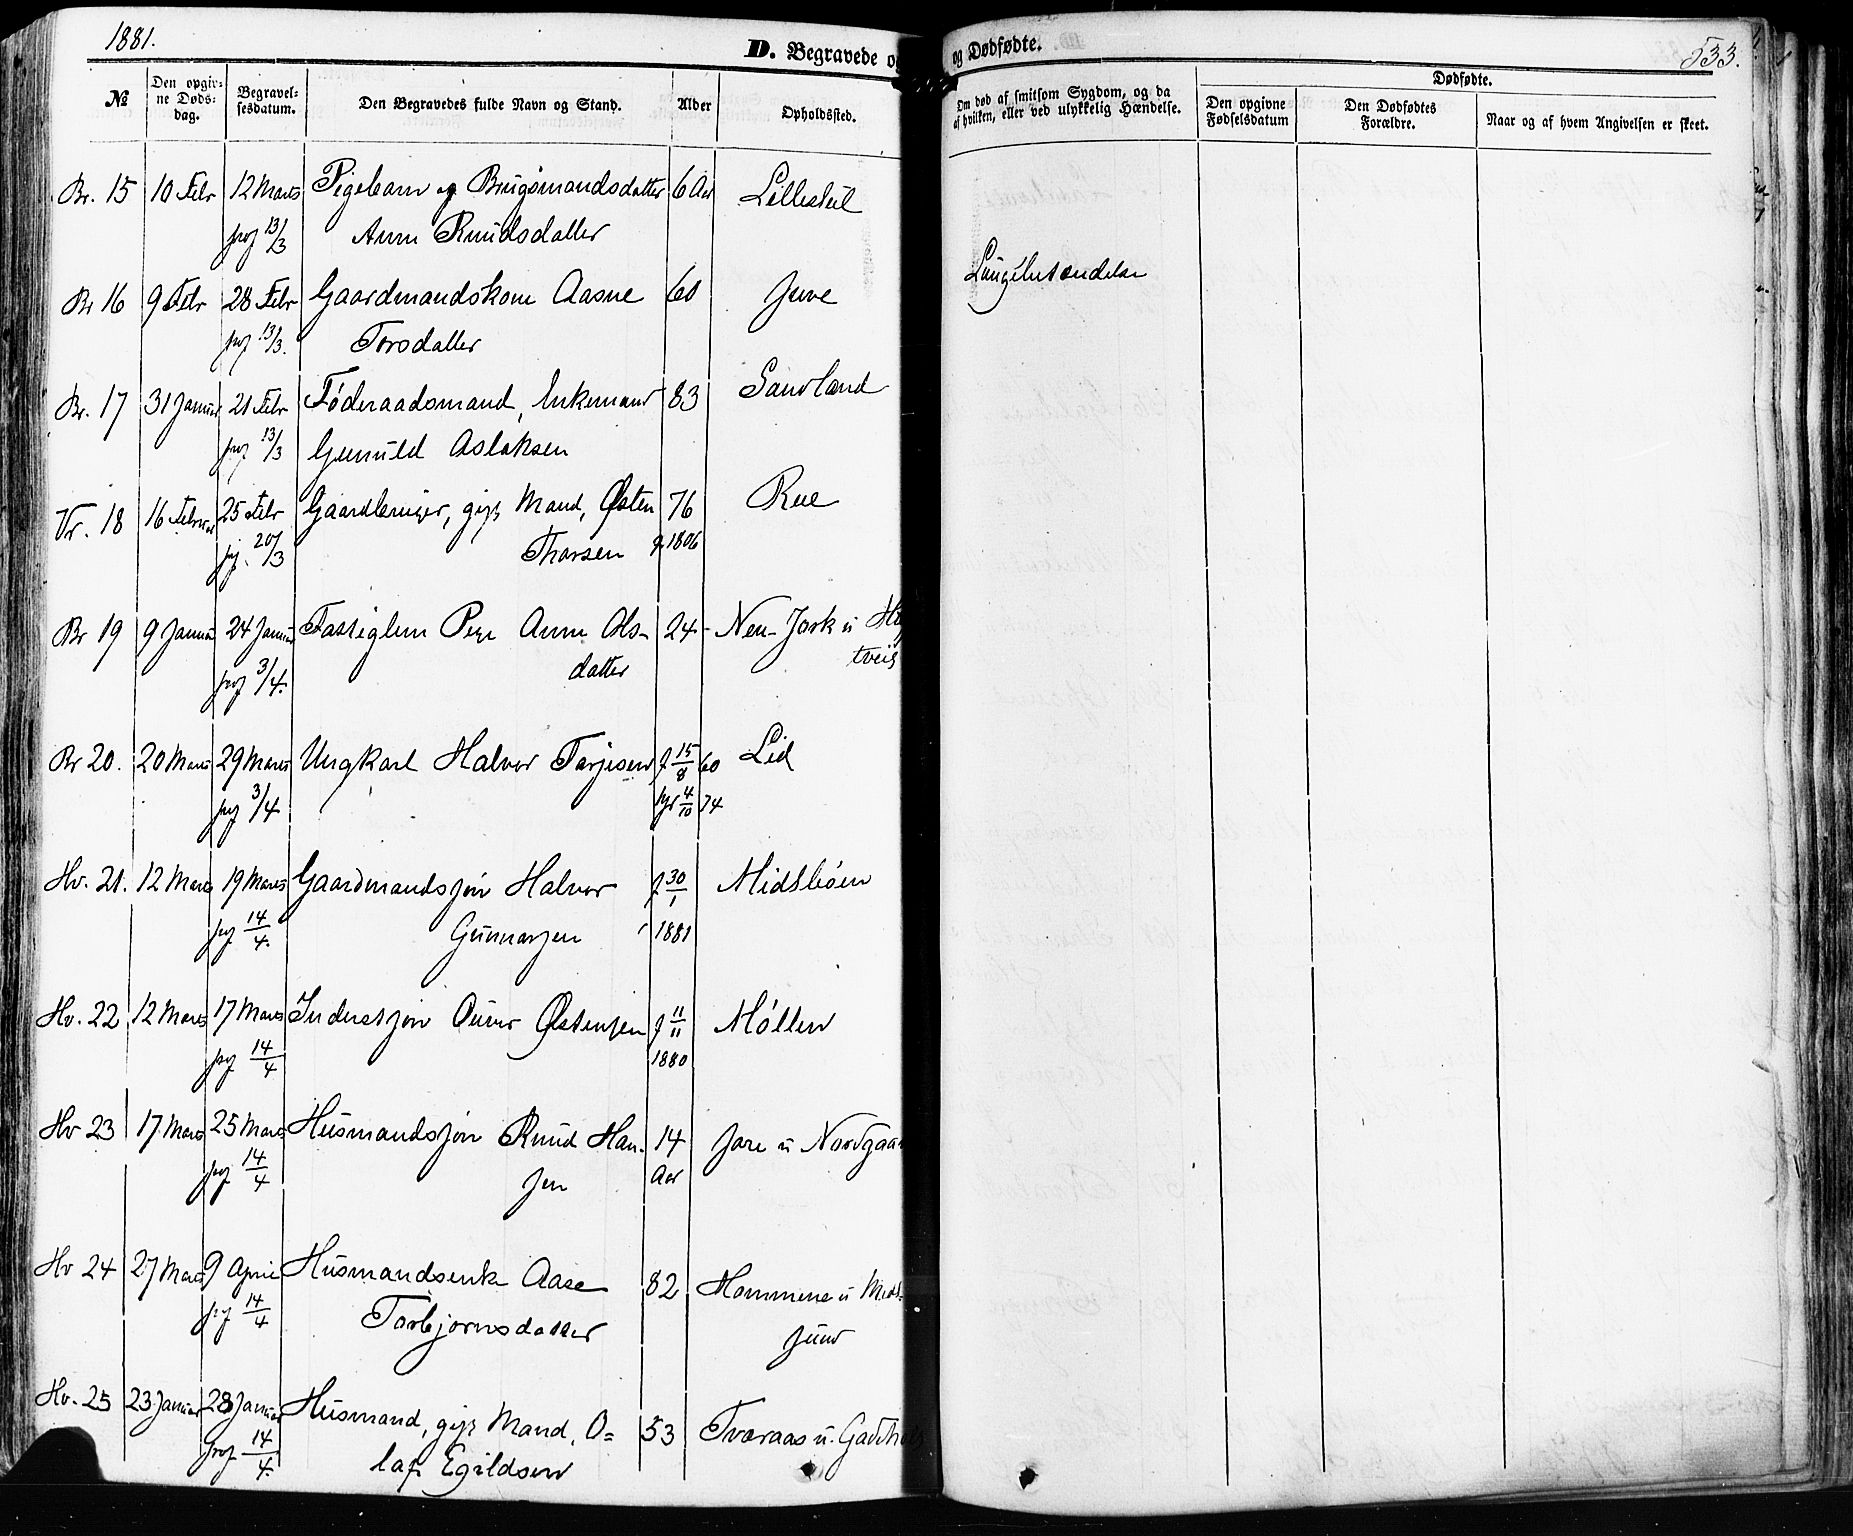 1881.
D. Begravede og
og Dødfødte.
533.
№
Den opgiv-
ne Døds-
dag.
Begravel-
sesdatum.
Den Begravedes fulde Navn og Stand.
Alder
Opholdssted.
Om død af smitsom Sygdom, og da
af hvilken, eller ved ulykkelig Hændelse.
Dødfødte.
Den opgivne
Fødselsdatum
Den Dødfødtes
Forældre.
Naar og af hvem Angivelsen er skeet.
Br. 15 10 Febr 12 Marts Pigebarn og Brugsmandsdatter 6 Aar Lillestul
13/3 Anne Knudsdatter
Lungebetændelse
Br 16 9 Febr 28 Febr Gaardmandskone Aasne 60 Juve
13/3. Torsdatter
Br. 17 31 Januar 21 Febr Føderaadsmand, Enkemand 83 Sandland
13/3 Gunuld Aslaksen
Vr. 18 16 Februar 25 Febr Gaardbruger, gift Mand, Østen 76 Rue
20/3 Thorsen f 1806
Br 19 9 Januar 24 Januar Fattiglem Pige Anne Ols- 24
3/4. datter
Br 20. 20 Marts 29 Marts Ungkarl Halvor Tarjesen f 15/8 60 Lid
3/4 4/10 74
Hv. 21. 12 Marts 19 Marts Gaardmandssøn Halvor f 30/1 Midtbøen
14/4. Gunnarsen 1881
Hv. 22 12 Marts 17 Marts Inderstsøn Østensen f 11/11 Møllen
14/4 1880
Hv 23 17 Marts 25 Marts Husmandssøn Knud Han- 14
14/4 sen Aar
Hv 24 27 Marts 9 April Husmandsenke Aase 82
14/4 Torbjørnsdatter
Hv. 25 23 Januar 28 Januar Husmand, gift Mand, O= 53 Tveraas u.
14/4. laf Egildsen